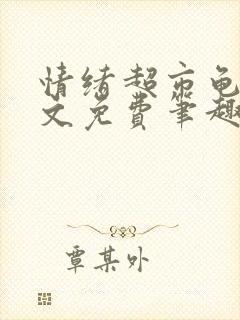 情绪超市龟
文免费笔趣
覃某外